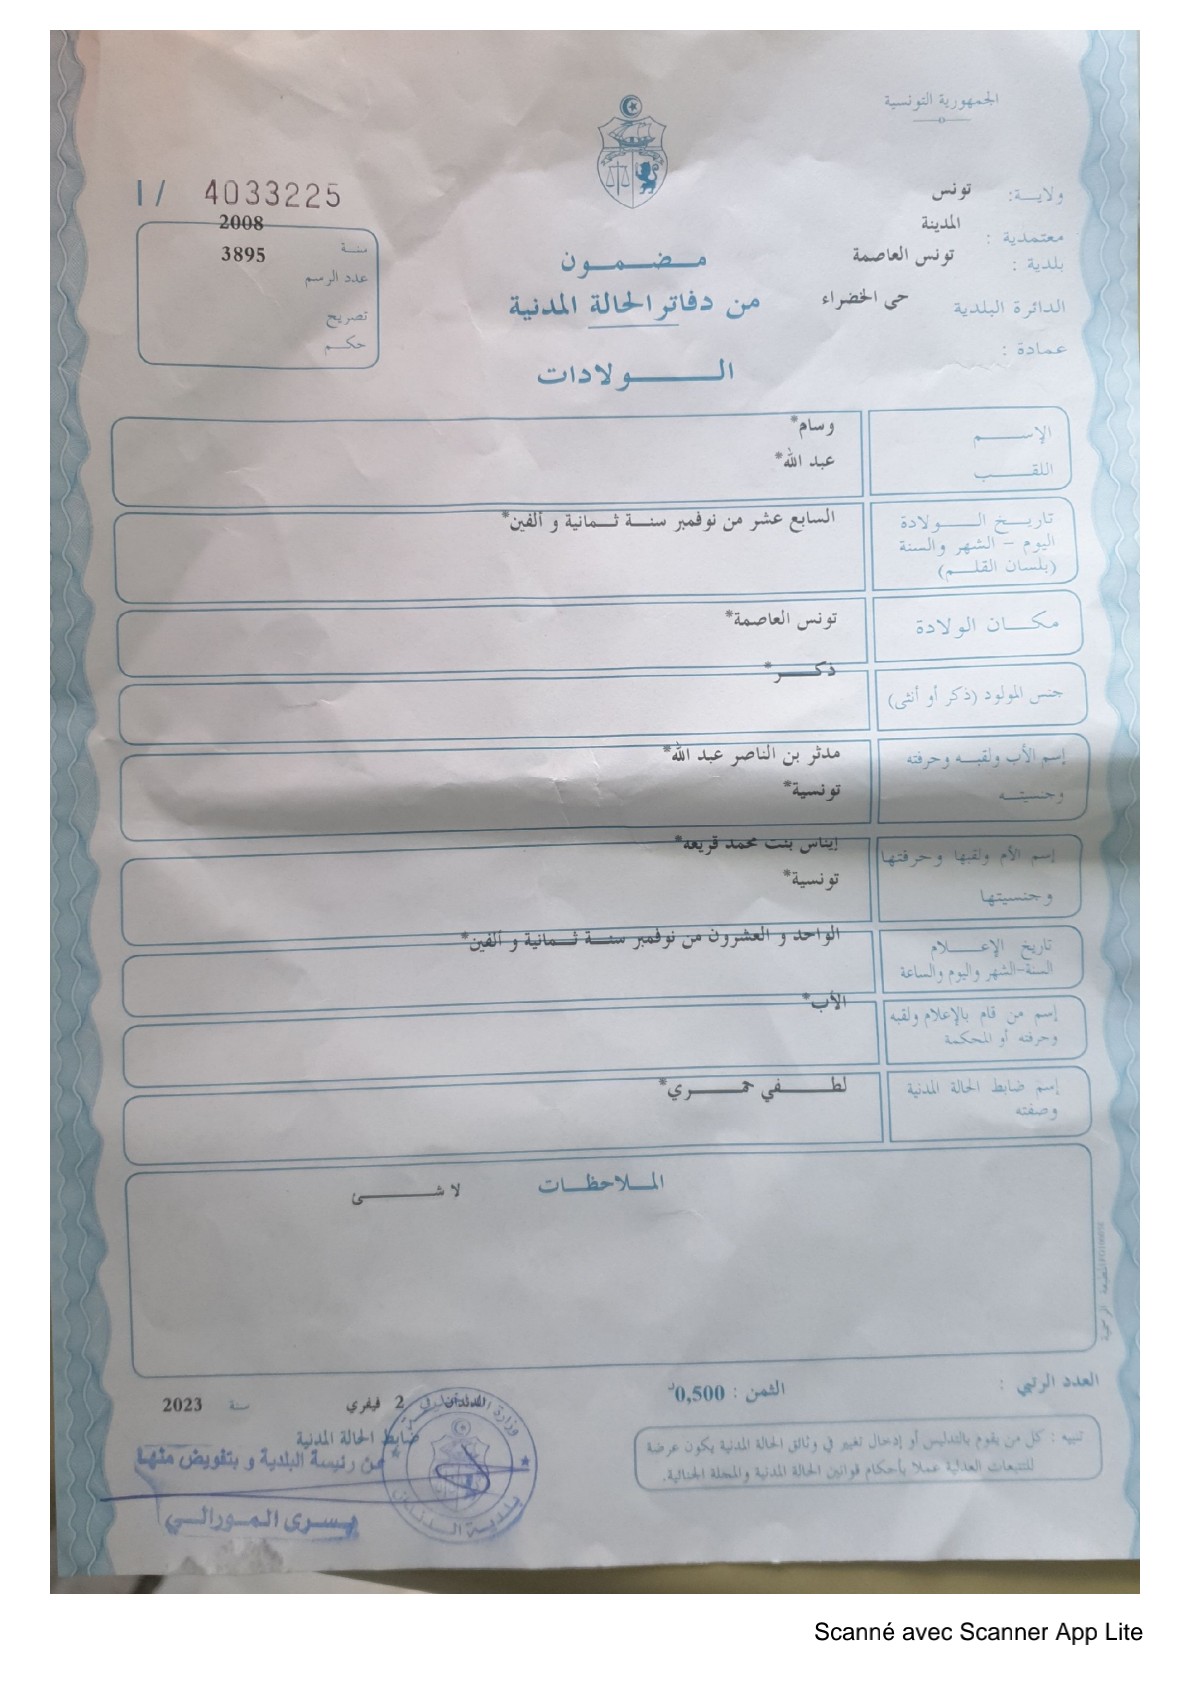 الجمهورية التونسية
ولاية: تونس
معتمدية : المدينة
بلدية : تونس العاصمة
الدائرة البلدية حي الخضراء
عمادة :
I / 4033225
سنة 2008
عدد الرسم 3895
تصريح
حكم
مضمون
من دفاتر الحالة المدنية
الولادات
الإسم وسام*
اللقب عبد الله*
تاريخ الولادة السابع عشر من نوفمبر سنة ثمانية و ألفين*
اليوم - الشهر والسنة
(بلسان القلم)
مكان الولادة تونس العاصمة*
جنس المولود (ذكر أو أنثى) ذكر*
إسم الأب ولقبه وحرفته مدثر بن الناصر عبد الله*
وجنسيته تونسية*
إسم الأم ولقبها وحرفتها إيناس بنت محمد قريعة*
وجنسيتها تونسية*
تاريخ الإعلام الواحد و العشرون من نوفمبر سنة ثمانية و ألفين*
السنة-الشهر واليوم والساعة
إسم من قام بالإعلام ولقبه الأب*
وحرفته أو المحكمة
إسم ضابط الحالة المدنية لطفي حمري*
وصفته
الملاحظات لا شئ
المطبعة الرسمية
العدد الرتبي :
الثمن : 0,500د
تنبيه : كل من يقوم بالتدليس أو إدخال تغيير في وثائق الحالة المدنية يكون عرضة
للتتبعات العدلية عملا بأحكام قوانين الحالة المدنية والمجلة الجنائية.
الدندان 2 فيفري سنة 2023
ضابط الحالة المدنية
عن رئيسة البلدية و بتفويض منها
يسرى المورالي
بلدية الدندان
Scanné avec Scanner App Lite